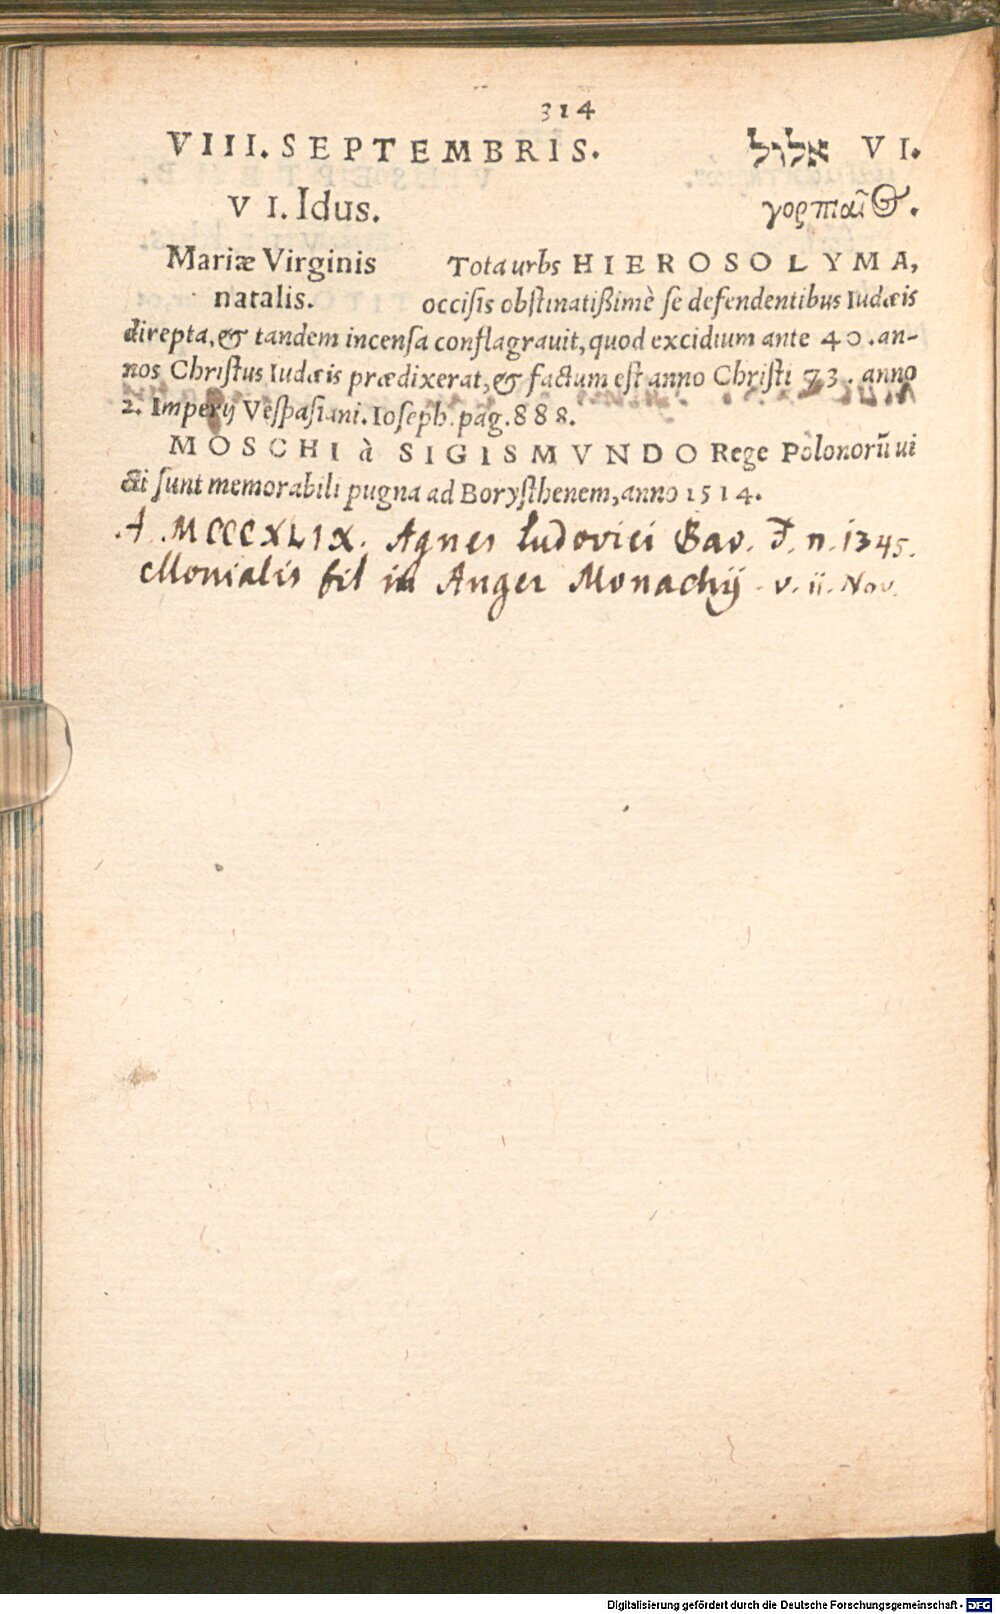 314
VIII. SEPTEMBRIS. אלול VI.
VI. Idus. γορπιαῖος.
Mariæ Virginis Tota urbs HIEROSOLYMA,
natalis. occiſis obſtinatißimè ſe defendentibus Iudæis
direpta, & tandem incenſa conflagrauit, quod excidium ante 40. an-
nos Chriſtus Iudæis prædixerat, & factum eſt anno Chriſti 73. anno
2. Imperij Veſpaſiani. Ioſeph. pag. 888.
MOSCHI à SIGISMVNDO Rege Polonorũ ui
cti ſunt memorabili pugna ad Boryſthenem, anno 1514.
A. MCCCXLIX. Agnes Ludovici Bav. F. n. 1345.
Monialis fil in Anger Monachij. v. ii. Nov.
Digitalisierung gefördert durch die Deutsche Forschungsgemeinschaft - DFG